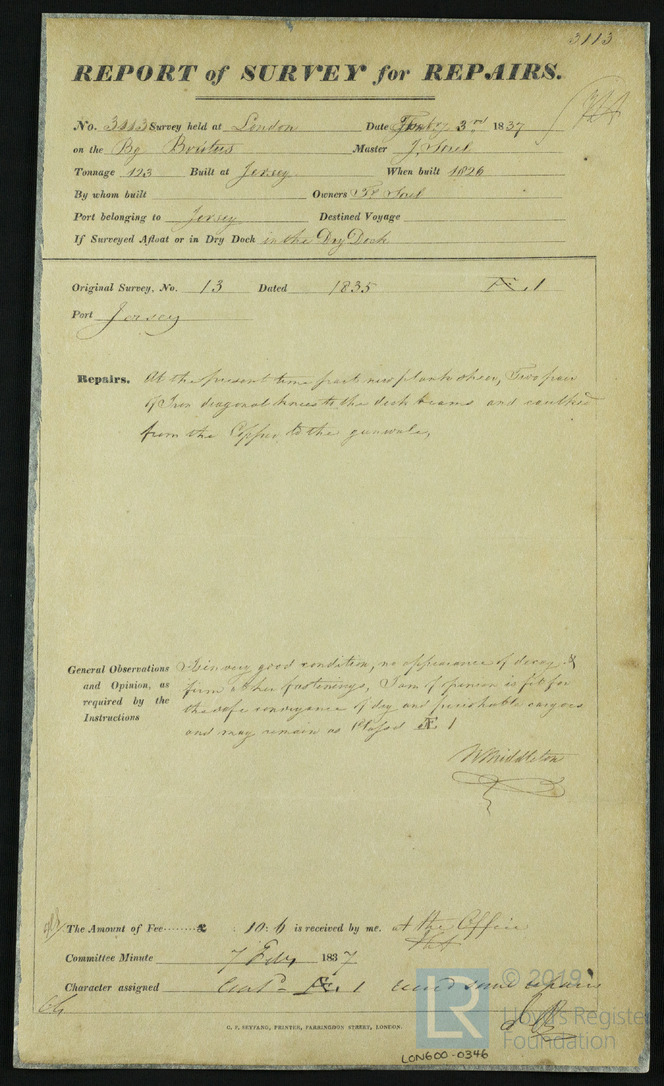 3113
REPORT of SURVEY for REPAIRS.
No. 3113 Survey held at London Date Feby 3rd 1837
on the Bg Brutus Master J. Sorel
Tonnage 123 Built at Jersey When built 1826
By whom built Owners Sorel
Port belonging to Jersey Destined Voyage
If Surveyed Afloat or in Dry Dock in the Dry Dock
Original Survey, No. 13 Dated 1835 Æ. 1
Port Jersey
Repairs. At the present time part new plank sheer, Two pair
of Iron diagonal knees to the deck beams and caulked
from the Copper to the gunwale,
General Observations and Opinion, as required by the Instructions
Is in very good condition, no appearance of decay &
firm in her fastenings, I am of opinion is fit for
the safe conveyance of dry and perishable cargoes
and may remain as Classed Æ 1
W Middleton
The Amount of Fee £ 10:6 is received by me, at the Office
Committee Minute 7 Feby 1837
Character assigned Contd Æ. 1 some repairs
C. F. SEYFANG, PRINTER, FARRINGDON STREET, LONDON.
LR
© 2019
Lloyd's Register
Foundation
LON600-0346